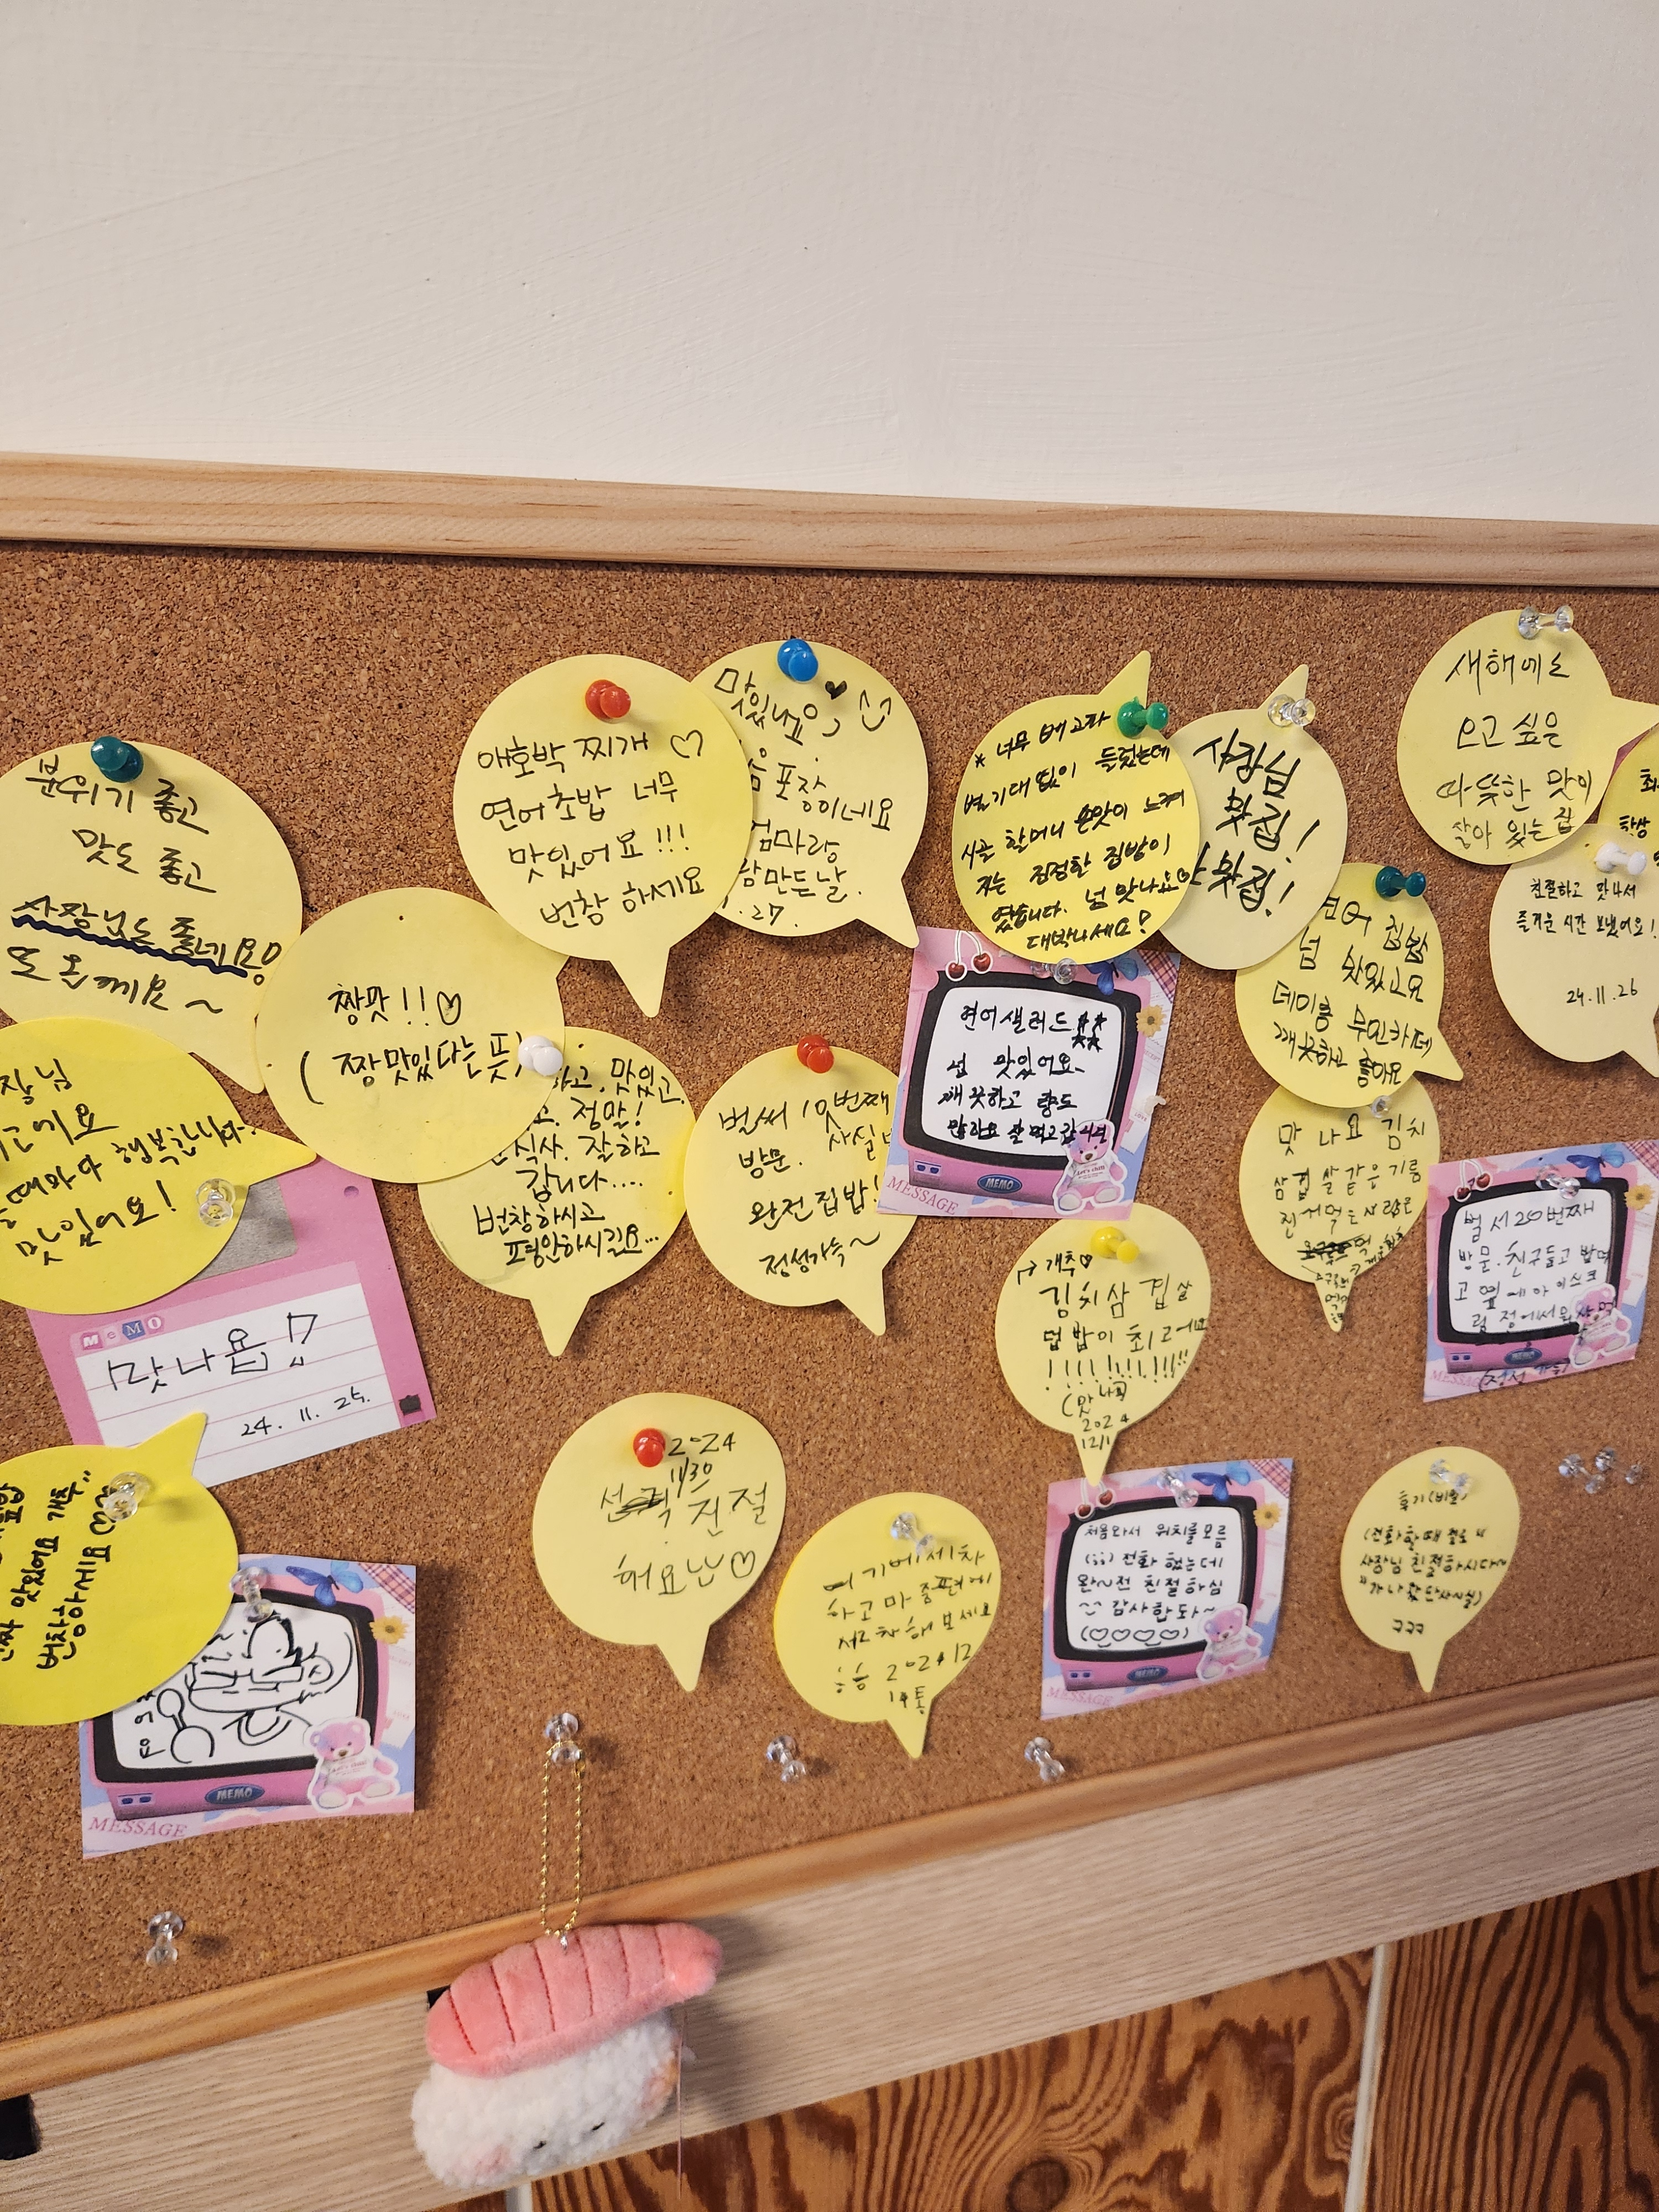 분위기 좋고
맛도 좋고
사장님도 좋네용
또 올께요~
장님
때마다 행복합니다.
맛있어요!
짱맛!!♡
(짱맛있다는 뜻)
애호박 찌개 ♡
연어초밥 너무
맛있어요!!!
번창하세요
맛있네요
포장이네요
엄마랑
만든날.
.27
하고. 맛있고.
고. 정말!
식사. 잘하고
갑니다....
번창하시고
평안하시길요...
벌써 10번째
방문. 사실
완전집밥!
정성가득~
* 너무 배고파
들렀는데
별기대 없이
시골 할머니 손맛이 느껴
지는 진정한 집밥이
었습니다. 넘 맛나요♡
대박나세요!
사장님
맛집!
맛집!
연어 샐러드
넘 맛있어요.
깨끗하고 양도
많아요 잘먹고갑니다
MEMO
MESSAGE
연어 집밥
넘 맛있고요
데미룽 무민카레
깨끗하고 좋아요
새해에도
오고 싶은
따뜻한 맛이
살아 있는 집
친절하고 맛나서
즐거운 시간 보냈어요!
24.11.26
맛나요 김치
삼겹살같은 기름
진
벌서 20번째
방문. 친구들고 밥먹
고 옆에 아이스크
림 점에서
MEMO
MESSAGE
개추♡
김치삼겹살
덮밥이 최고에요
!!!!!!!!!!!
(맛나
2024
12/1
MeMO
맛나욥!!
24. 11. 25.
진짜 맛있어요 개추"
번창하세요♡
MEMO
MESSAGE
2024
11/30
친절
해요
여기에 세차
하고
2024 12
처음와서 위치를모름
(;;) 전화 했는데
완~전 친절하심
^^ 감사합돠~
(♡♡♡♡)
MEMO
MESSAGE
후기(비밀)
(전화할때
사장님 친절하시다~
ㅋㅋㅋ